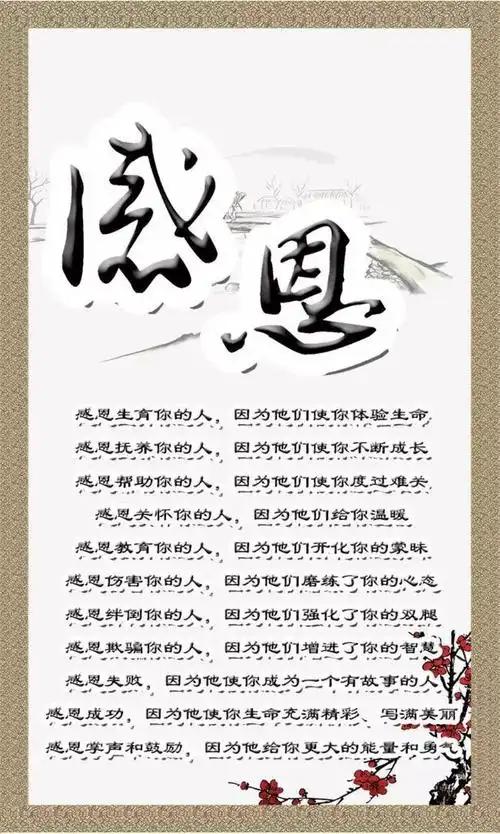 感恩
感恩生育你的人，因为他们使你体验生命
感恩抚养你的人，因为他们使你不断成长
感恩帮助你的人，因为他们使你度过难关
感恩关怀你的人，因为他们给你温暖
感恩教育你的人，因为他们开化你的蒙昧
感恩伤害你的人，因为他们磨练了你的心态
感恩绊倒你的人，因为他们强化了你的双腿
感恩欺骗你的人，因为他们增进了你的智慧
感恩失败，因为他使你成为一个有故事的人
感恩成功，因为他使你生命充满精彩、写满美丽
感恩掌声和鼓励，因为他给你更大的能量和勇气